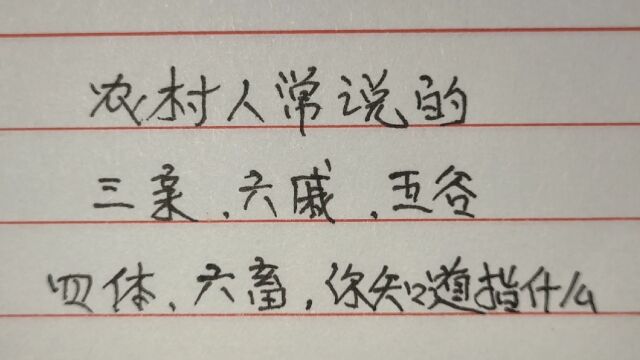 农村人常说的
三亲、六戚、五谷
四体、六畜,你知道指什么